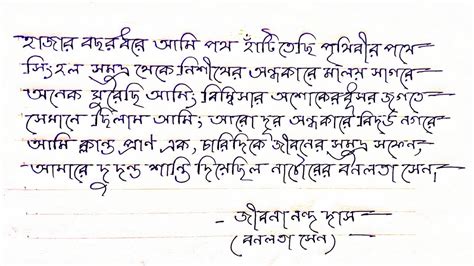 হাজার বছর ধরে আমি পথ হাঁটিতেছি পৃথিবীর পথে
সিংহল সমুদ্র থেকে নিশীথের অন্ধকারে মালয় সাগরে
অনেক ঘুরেছি আমি; বিম্বিসার অশোকের ধূসর জগতে
সেখানে ছিলাম আমি; আরো দূর অন্ধকারে বিদর্ভ নগরে
আমি ক্লান্ত প্রাণ এক, চারিদিকে জীবনের সমুদ্র সফেন,
আমারে দু দন্ড শান্তি দিয়েছিল নাটোরের বনলতা সেন,
- জীবনানন্দ দাস
(বনলতা সেন)